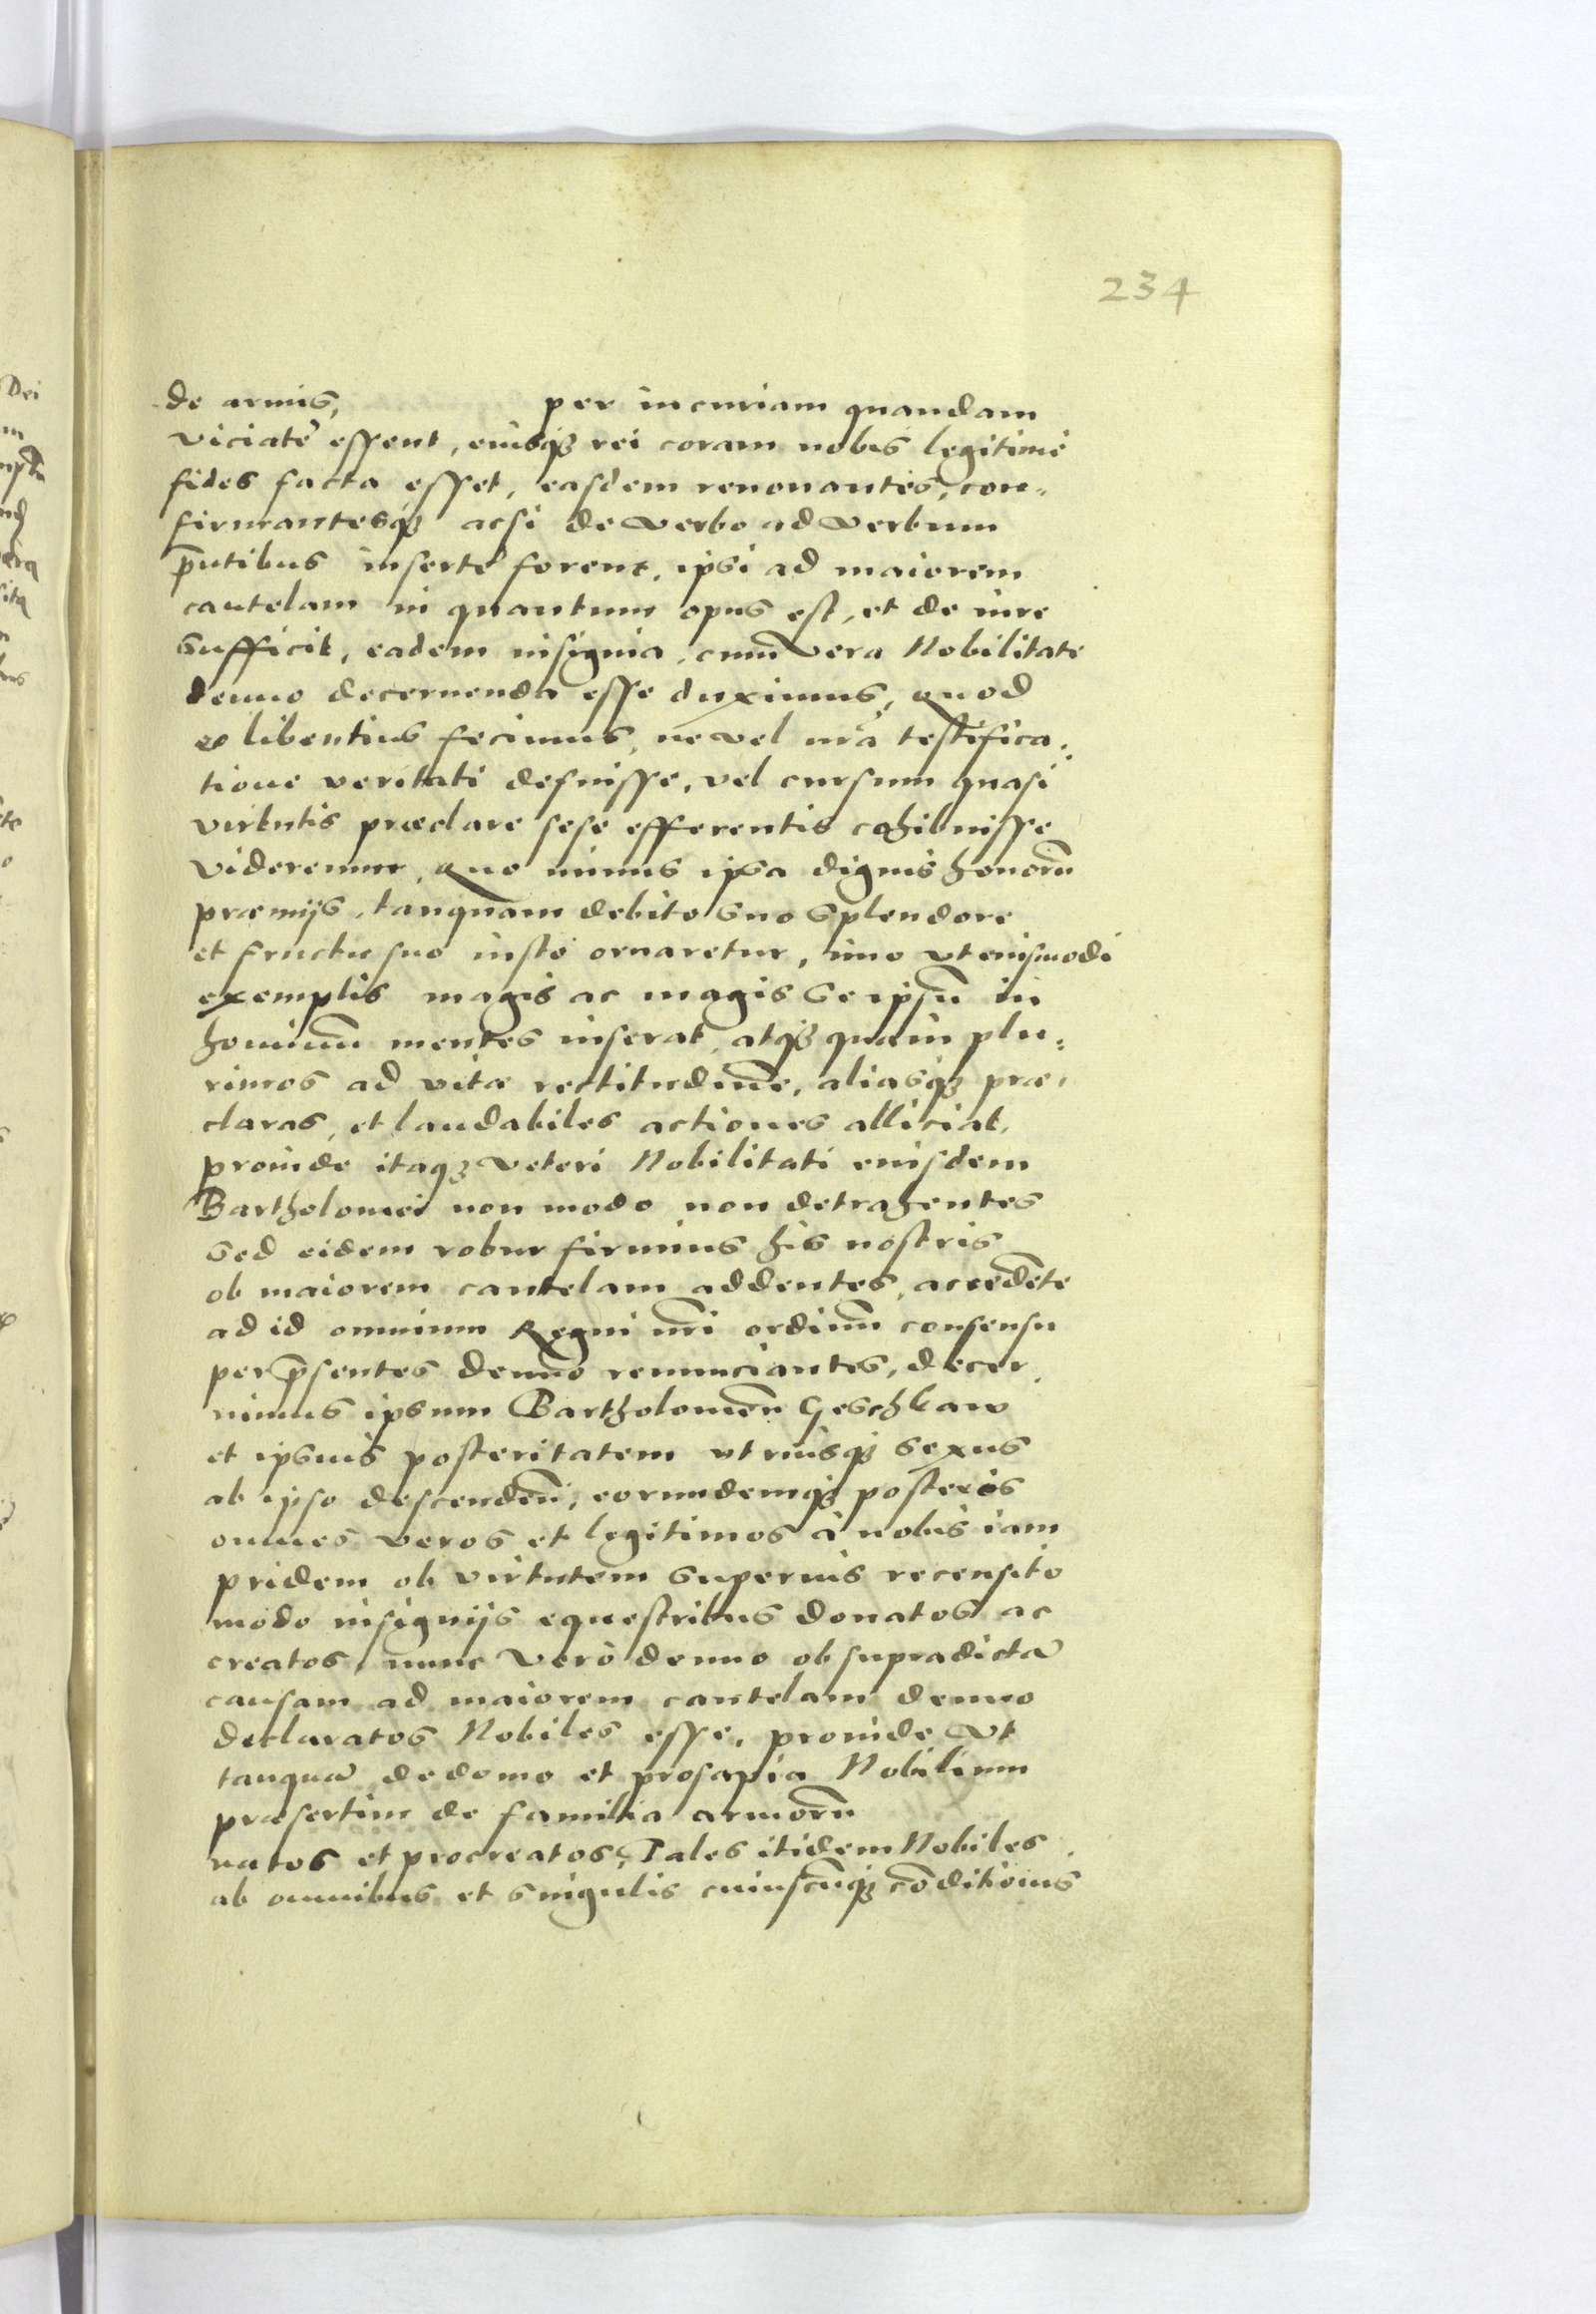 234
de armis, per incuriam quandam
viciatę essent, eiusq₃ rei coram nobis legitimè
fides facta esset, easdem renouantes, con-
firmantesq₃ acsi de verbo ad verbum
p̄ntibus insertę forent, ipsi ad maiorem
cautelam in quantum opus est, et de iure
sufficit, eadem insignia, cum vera Nobilitate
denuo decernenda esse duximus, quod
eo libentius fecimus, ne vel nr̄a testifica-
tione veritati defuisse, vel cursum quasi
virtutis præclare sese efferentis cohibuisse
videremur, quo minus ipsa dignis honorū
præmijs, tanquam debito suo splendore
et fructu suo iusto ornaretur, imo vt eiusmodi
exemplis magis ac magis se ipsū in
hominū mentes inserat, atq₃ quam plu-
rimos ad vitæ rectitudinē, aliasq₃ præ-
claras, et laudabiles actiones alliciat.
proinde itaq₃ veteri Nobilitati eiusdem
Bartholomei non modo non detrahentes
sed eidem robur firmius his nostris
ob maiorem cautelam addentes, accedēte
ad id omnium Regni nr̄i ordinū consensu
per p̄sentes denuo renunciantes, decer-
nimus ipsum Bartholomeū Geschkaw
et ipsius posteritatem vtriusq₃ sexus
ab ipso descenden̄, eorundemq₃ posteros
omnes veros et legitimos à nobis iam
pridem ob virtutem superius recensito
modo insignijs equestribus donatos ac
creatos, nunc verò denuo ob supradictā
causam ad maiorem cautelam denuo
declaratos Nobiles esse, proinde vt
tanquā de domo et prosapia Nobilium
præsertim de familia armorū
natos et procreatos, Tales itidem Nobiles
ab omnibus et singulis cuiuscūq₃ cōditionis